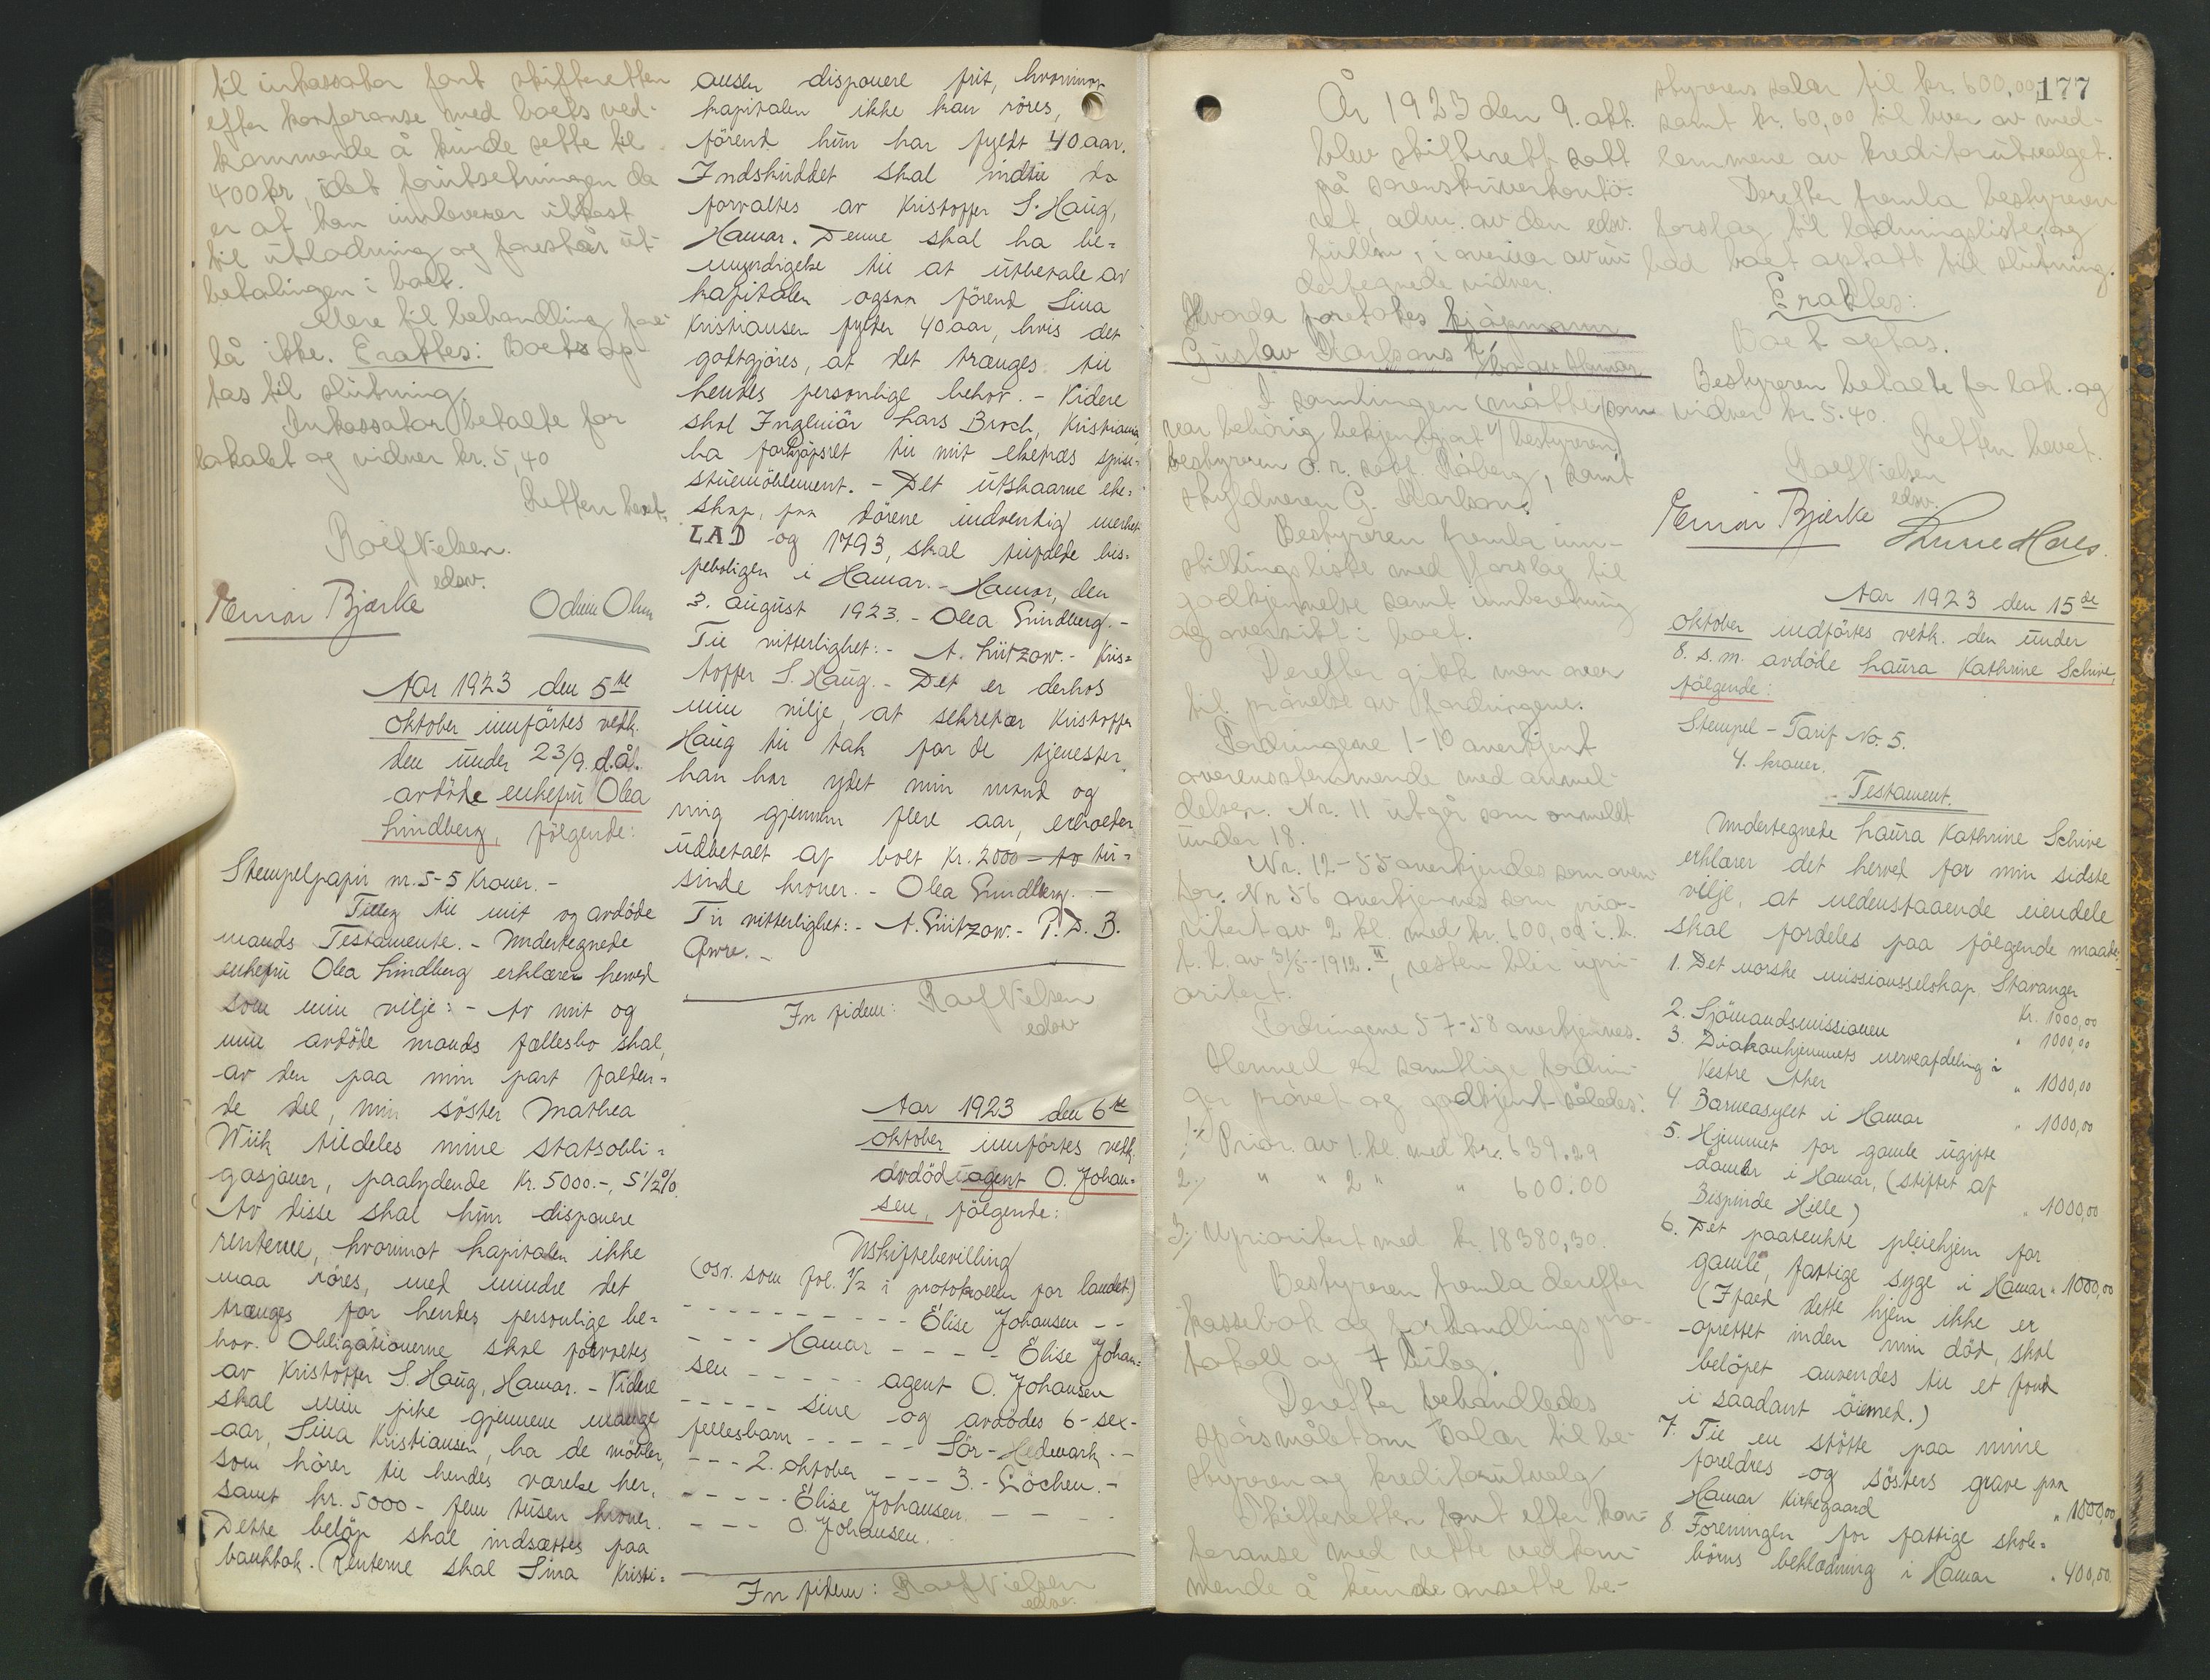 til inkassator fant skifteretten
efter konferanse med boets ved-
kommende å kunde sette til
400 kr, idet forutsetningen da
er at han innleverer utkast
til utlodning og forestår ut-
betalingen i boet.
Mere til behandling fore-
lå ikke. Eraktes: Boet op-
tas til slutning.
Inkassator betalte for
lokalet og vidner kr. 5,40
Retten hevet.
Rolf Nielsen.
edsv.
Einar Bjerke
Odin Olsen
Aar 1923 den 5te
oktober innførtes vedk.
den under 23/9. d.å.
avdøde enkefru Olea
Lindberg, følgende:
Stempelpapir nr. 5-5 Kroner. -
Tillæg til mit og avdøde
mands Testamente. - Undertegnede
enkefru Olea Lindberg erklærer herved
som min vilje: - Av mit og
min avdøde mands fællesbo skal,
av den paa min part falden=
de del, min søster Mathea
Wiik tildeles mine statsobli=
gasjoner, paalydende Kr. 5000.-, 5 1/2%.
Av disse skal hun disponere
renterne, hvorimot kapitalen ikke
maa røres, med mindre det
trænges for hendes personlige be=
hov. Obligationerne skal forvaltes
av Kristoffer S. Haug, Hamar. - Videre
skal min pike gjennem mange
aar, Lina Kristiansen, ha de møbler,
som hører til hendes værelse her,
samt kr. 5000 - fem tusen kroner.
Dette beløp skal indsættes paa
bankbok. Renterne skal Lina Kristi=
ansen disponere frit, hvorimot
kapitalen ikke kan røres,
førend hun har fyldt 40 aar.
Indskuddet skal indtil da
forvaltes av Kristoffer S. Haug,
Hamar. Denne skal ha be=
myndigelse til at utbetale av
kapitalen ogsaa førend Lina
Kristiansen fylder 40 aar, hvis det
godtgjøres, at det trænges til
hendes personlige behov. - Videre
skal Ingeniør Lars Broch, Kristiania
ha forkjøpsret til mit eketræs spise-
stuemøblement. - Det utskaarne eke=
skap, paa dørene indvendig merket
LAD og 1793, skal tilfalde bis=
peboligen i Hamar. - Hamar, den
3. august 1923. - Olea Lindberg. -
Til vitterlighet: - A. Lützow. - Kris=
toffer S. Haug. - Det er derhos
min vilje, at sekretær Kristoffer
Haug til tak for de tjenester,
han har ydet min mand og
mig gjennem flere aar, erholder
udbetalt af boet Kr. 2000 - to tu=
sinde kroner. - Olea Lindberg. -
Til vitterlighet: - A. Lützow. - P. D. B.
Qwre. -
In fidem: Rolf Nielsen
edsv
Aar 1923 den 6te
oktober innførtes vedk.
avdøde agent O. Johan=
sen, følgende:
Uskiftebevilling
(osv. som fol. 1/2 i protokollen for landet.)
- - - - - - - - - Elise Johansen - -
- - - Hamar - - - - Elise Johan=
sen - - - - - agent O. Johansen
- - - - - sine og avdødes 6-sex-
fellesbarn - - - - - Sør-Hedmark. -
- - - 2. oktober - - - 3. - Løchen. -
- - - - - Elise Johansen. - - - -
- - - O. Johansen.
In fidem: Rolf Nielsen
edsv.
177
År 1923 den 9. okt.
blev skifterett satt
på sorenskriverkonto-
ret, adm. av den edsv.
fullm., i overvær av un-
dertegnede vidner.
Hvorda foretokes kjøpmann
Gustav Karlsons k/bo av Hamar
I samlingen (møtte) som
var behørig bekjentgjort v/bestyreren,
bestyreren o.r. sakf. Råberg, samt
skyldneren G. Karlson.
Bestyreren fremla inn-
stillingsliste med forslag til
godkjennelse samt innberetning
og oversikt i boet.
Derefter gikk man over
til prøvelse av fordringene.
Fordringene 1-10 anerkjent
overensstemmende med anmel-
delsen. Nr. 11 utgår som anmeldt
under 18.
Nr. 12-55 anerkjendes som oven-
for. Nr. 56 anerkjennes som prio-
ritert av 2 kl. med kr. 600,00 i.h.
t. l. av 31/5-1912. II, resten blir upri-
oritert.
Fordringene 57-58 anerkjennes.
Hermed er samtlige fordrin-
ger prøvet og godkjent således:
1./ Prior. av 1. kl. med kr. 639.29
2./ " " 2 " " 600.00
3./ Uprioritert med kr. 18380,30.
Bestyreren fremla derefter
kassebok og forhandlingspro-
tokoll og 7 bilag.
Derefter behandledes
spørsmålet om salær til be-
styreren og kreditorutvalg
Skifteretten fant efter kon-
feranse med rette vedkom-
mende å kunde ansette be-
styrerens salær til kr. 600,00
samt kr. 60,00 til hver av med-
lemmene av kreditorutvalget.
Derefter fremla bestyreren
forslag til lodningsliste, og
bad boet optatt til slutning.
Eraktes:
Boet optas.
Bestyreren betalte for lok. og
vidner kr. 5.40.
Retten hevet.
Rolf Nielsen
edsv.
Einar Bjerke
Aar 1923 den 15de
oktober indførtes vedk. den under
8. s.m. avdøde Laura Kathrine Schive,
følgende:
Stempel-Tarif No. 5.
4. kroner.
- Testament.
Undertegnede Laura Kathrine Schive
erklærer det herved for min sidste
vilje, at nedenstaaende eiendele
skal fordeles paa følgende maade:
1. Det norske missionsselskap Stavanger
kr. 1000,00
2. Sjømandsmissionen " 1000,00
3. Diakonhjemmets nerveafdeling i
Vestre Aker " 1000,00
4. Barneasylet i Hamar " 1000,00
5. Hjemmet for gamle ugifte
damer i Hamar, (stiftet af
Bispinde Hille) " 1000,00
6. Det paatenkte pleiehjem for
gamle, fattige syge i Hamar " 1000,00
(Ifald dette hjem ikke er
oprettet inden min død, skal
beløpet anvendes til et fond
i saadant øiemed.)
7. Til en støtte paa mine
foreldres og søsters grave paa
Hamar Kirkegaard " 1000,00
8. Foreningen for fattige skole=
børns beklædning i Hamar " 400,00.